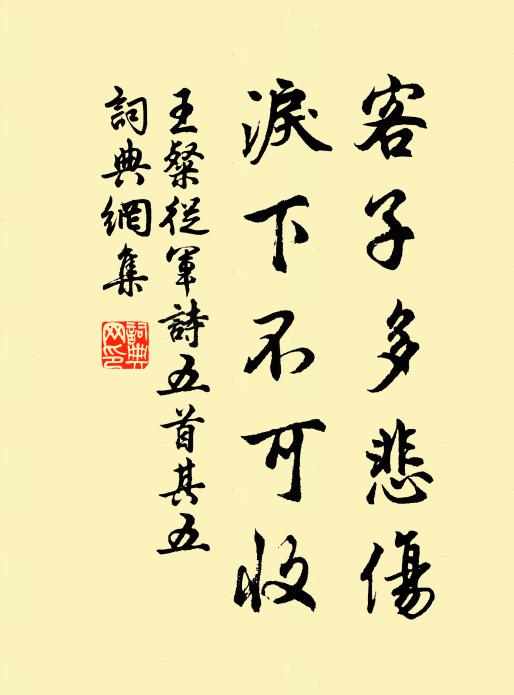 客子多悲傷
淚下不可收
王粲從軍詩五首其五
詞典網集
詞典
網印